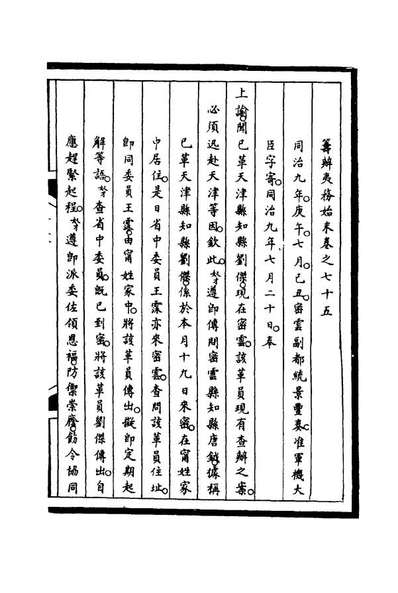 籌辦夷務始末卷之七十五
同治九年庚午七月己丑密雲副都統景豐奏准軍機大
臣字寄同治九年七月二十日奉
上諭聞已革天津縣知縣劉傑現在密雲該革員現有查辦之案
必須迅赴天津等因欽此奴才遵即傳問密雲縣知縣唐據稱
已革天津縣知縣劉傑係於本月十九日來密在甯姓家
中居住是日省中委員王霖亦來密雲查問該革員住址
即同委員王霖由甯姓家中將該革員傳出擬即定期起
解等語奴才查省中委員既已到密將該革員劉傑傳出自
應趕緊起程奴才遵即派委佐領恩福防禦崇廕飭令協同